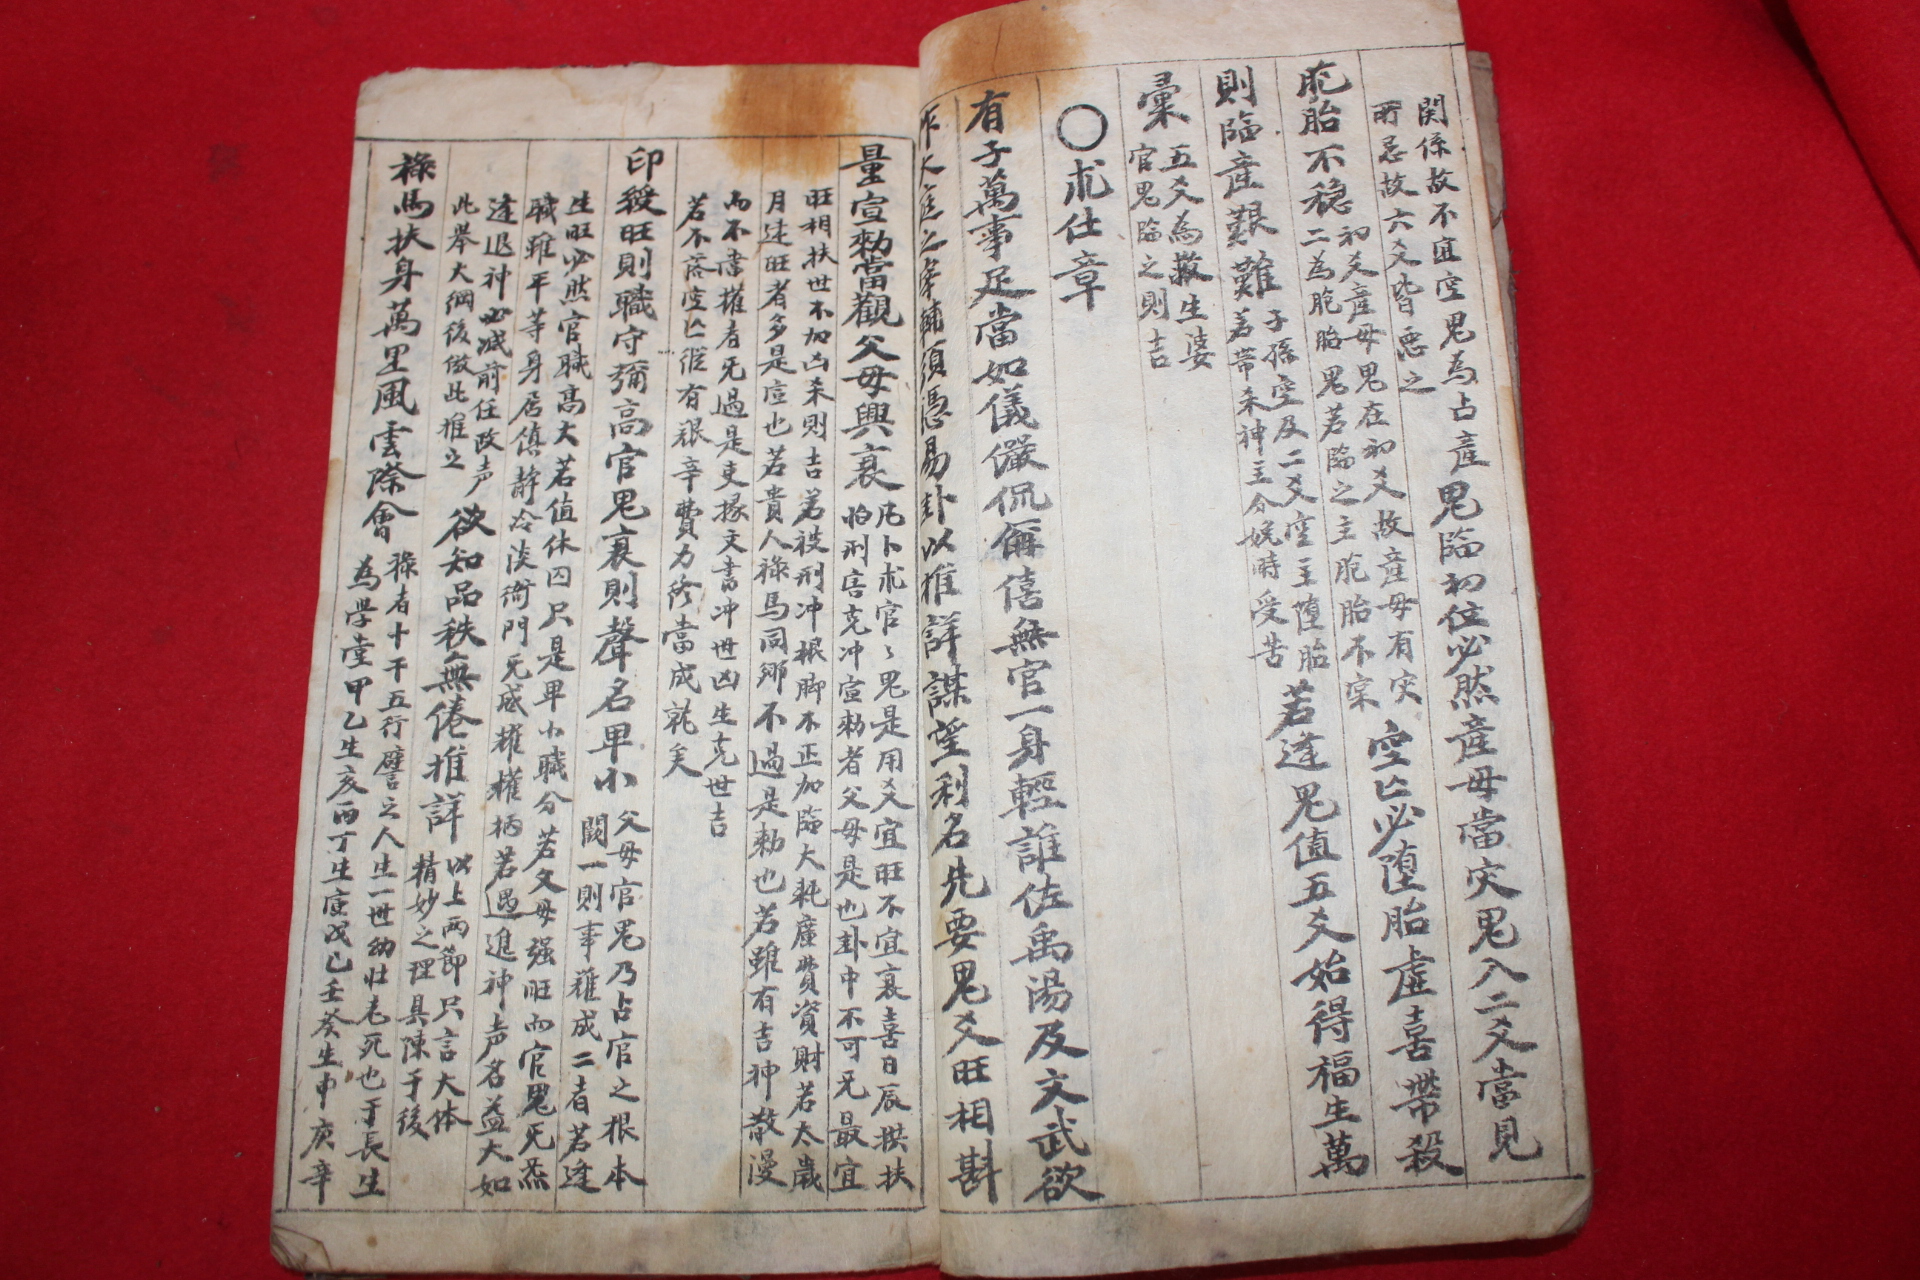 関係故不宜空鬼為占産鬼臨初位必然産母當灾鬼入二爻當見
所忌故六爻皆惡之
胞胎不穏初爻産母鬼在初爻故産母有灾
二為胞胎鬼若臨之主胞胎不寀
空亡必堕胎虛喜帶殺
則臨産艱難子孫空及二爻空主堕胎
若帶杀神主分娩時受苦
若逢鬼值五爻始得福生萬
彙五爻為救生婆
官鬼臨之則吉
○求仕章
有子萬事足當如儀儼侃偁僖無官一身輕誰佐禹湯及文武欲
作大廷之宰輔須憑易卦以推詳謀望利名先要鬼爻旺相斟
量宣勅當觀父母興衰凡卜求官々鬼是用爻宜旺不宜衰喜日辰拱扶
怕刑害克冲宣勅者父母是也卦中不可旡最宜
旺相扶世不加凶杀則吉若被刑冲根脚不正加臨大耗廣費資財若太歲
月建旺者多是宣也若貴人祿馬同鄉不過是勅也若雖有吉神散漫
而不當權者旡過是吏掾文書冲世凶生克世吉
若不落空亡縱有艱辛費力終當成就矣
印綬旺則職守彌高官鬼衰則聲名卑小父母官鬼乃占官之根本
闕一則事難成二者若逢
生旺必然官職高大若值休囚只是卑小職分若文母强旺而官鬼旡炁
職雖平等身居傎静冷淡衙門旡威權權柄若遇進神声名益大如
逢退神必减前任政声
此舉大綱後倣此推之
欲知品秩無倦推詳以上兩節只言大体
精妙之理具陳于後
祿馬扶身萬里風雲際會祿者十干五行譬之人生一世幼壯老死也于長生
為學堂甲乙生亥丙丁生寅戊己壬癸生申庚辛